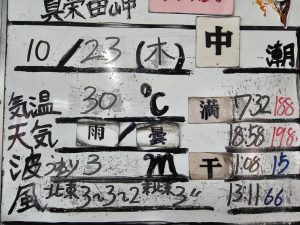 真栄田岬
10/23(木) 中潮
気温 30℃ 満 7:32 188
天気 雨/曇 18:58 198
波 うねり3m 干 1:08 15
風 北東3〜2 3 13:11 66